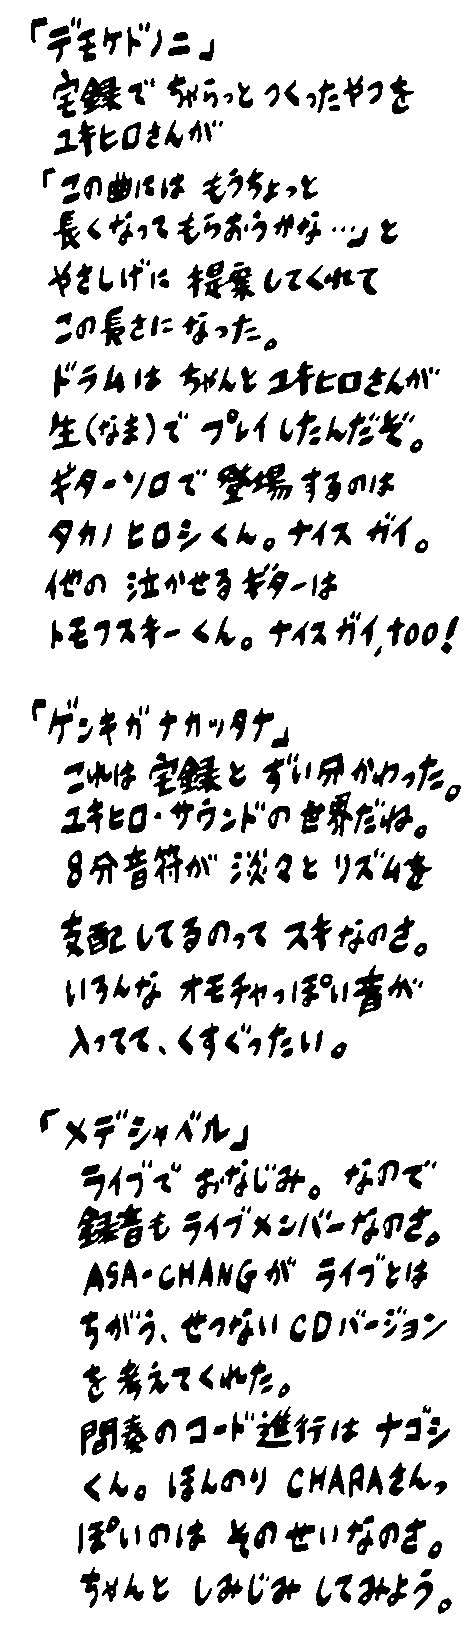 「デモケドノニ」
宅録で ちゃらっと つくったやつを
ユキヒロさんが
「この曲には もうちょっと
長くなってもらおうかな…」と
やさしげに 提案してくれて
この長さに なった。
ドラムは ちゃんと ユキヒロさんが
生(なま)で プレイしたんだぞ。
ギターソロで 登場するのは
タカノヒロシくん。ナイスガイ。
他の 泣かせるギターは
トモフスキーくん。ナイスガイ,too!
「ゲンキガナカッタナ」
これは 宅録と ずい分かわった。
ユキヒロ・サウンドの世界だね。
8分音符が 淡々と リズムを
支配してるのって スキなのさ。
いろんな オモチャっぽい音が
入ってて、くすぐったい。
「メデシャベル」
ライブで おなじみ。なので
録音も ライブメンバーなのさ。
ASA-CHANGが ライブとは
ちがう、せつない CDバージョン
を 考えてくれた。
間奏のコード進行は ナゴシ
くん。ほんのり CHARAさんっ
ぽいのは そのせいなのさ。
ちゃんと しみじみ してみよう。